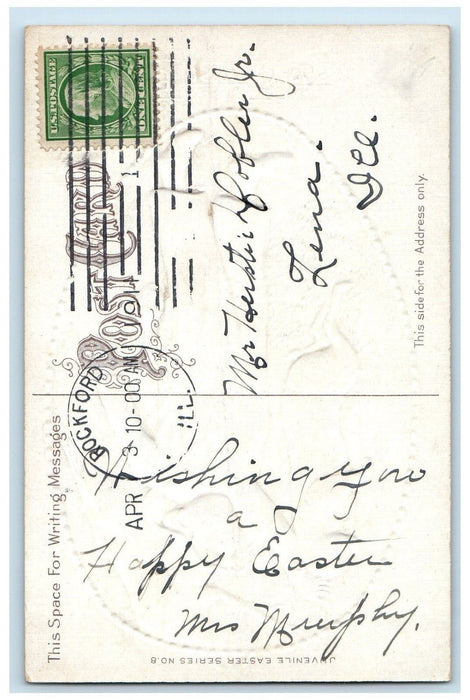 U.S. POSTAGE
ONE CENT
POST CARD
ROCKFORD
APR 3 10-00 AM
ILL.
1
This side for the Address only.
Mr Hersti Cobler Jr.
Lena.
Ill.
This Space For Writing Messages
Wishing you
a
Happy Easter
Mrs Murphy.
JUVENILE EASTER SERIES NO.8